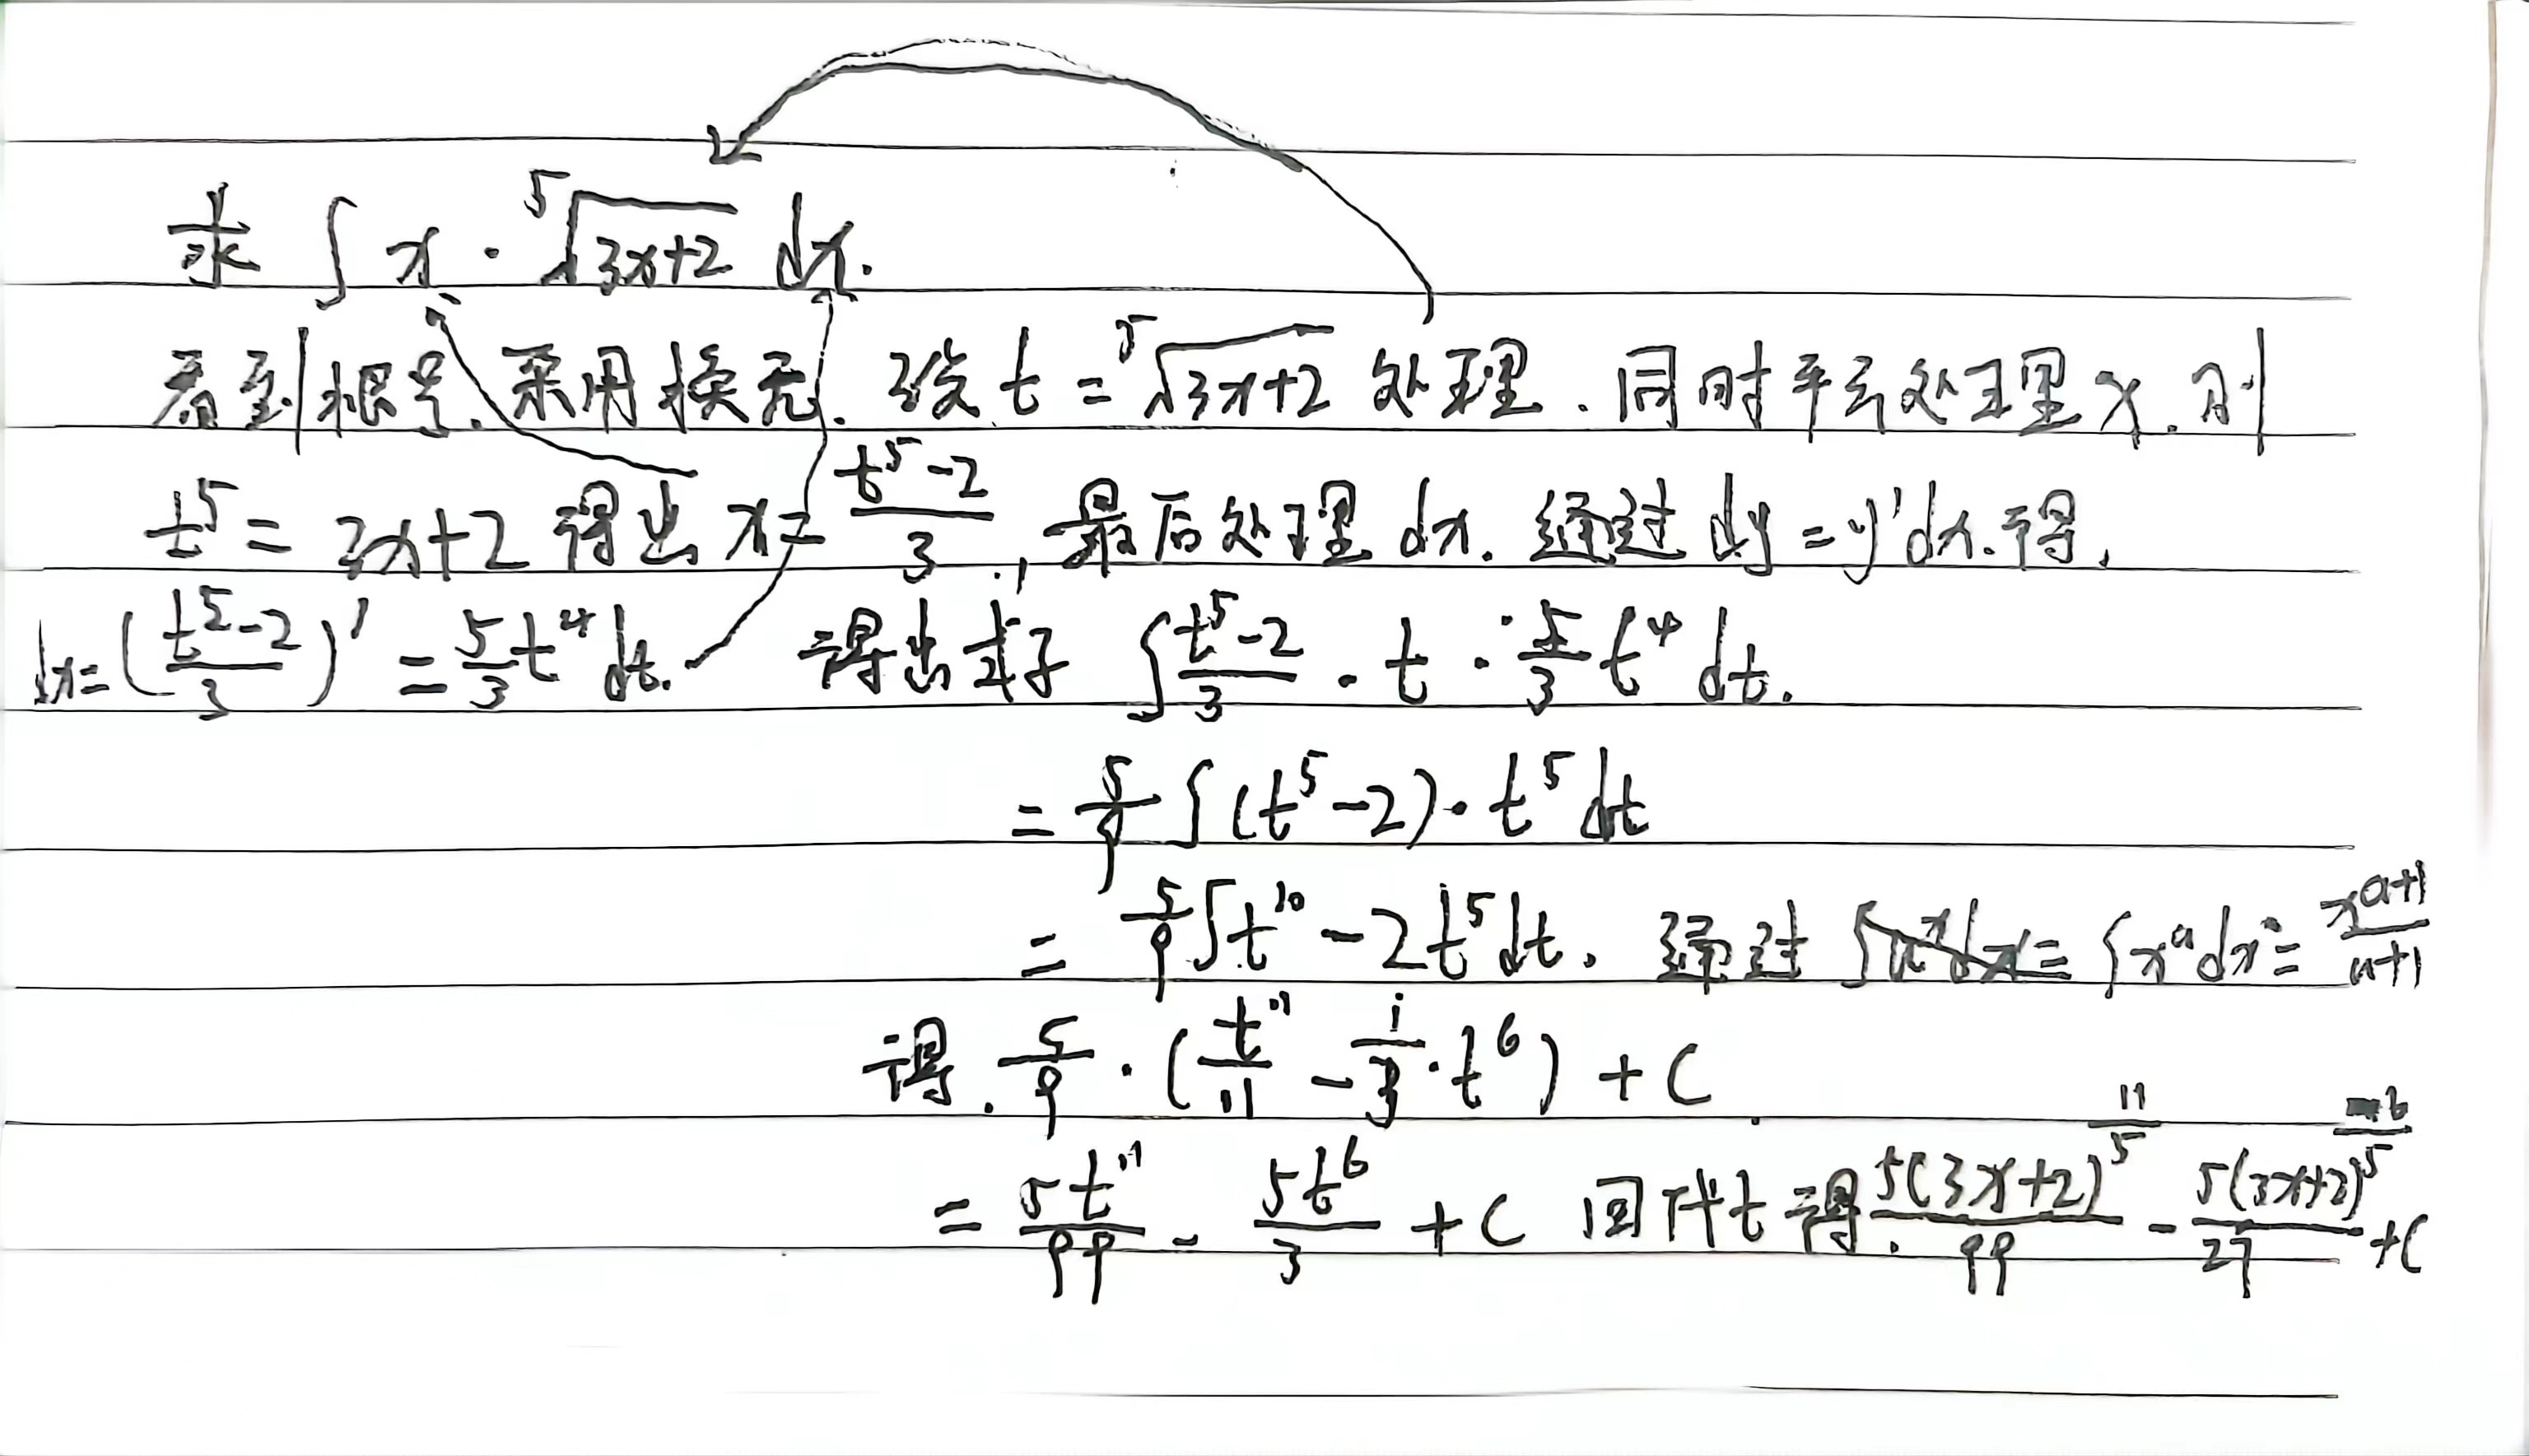 求 ∫ x · ⁵√(3x+2) dx.
看到根号、采用换元. 设 t = ⁵√(3x+2) 处理. 同时平方处理x. 则
t⁵ = 3x+2 得出 x = (t⁵-2)/3, 最后处理 dx. 通过 dy = y'dx. 得,
dx = ((t⁵-2)/3)' = 5/3 t⁴ dt. 得出式子 ∫ (t⁵-2)/3 · t · 5/3 t⁴ dt.
= 5/9 ∫ (t⁵-2) · t⁵ dt
= 5/9 ∫ t¹⁰ - 2t⁵ dt. 通过 ∫xᵃdx = xᵃ⁺¹/(a+1)
得. 5/9 · (t¹¹/11 - 1/3 · t⁶) + C
= 5t¹¹/99 - 5t⁶/3 + C 回代t得. 5(3x+2)^(11/5)/99 - 5(3x+2)^(6/5)/27 + C